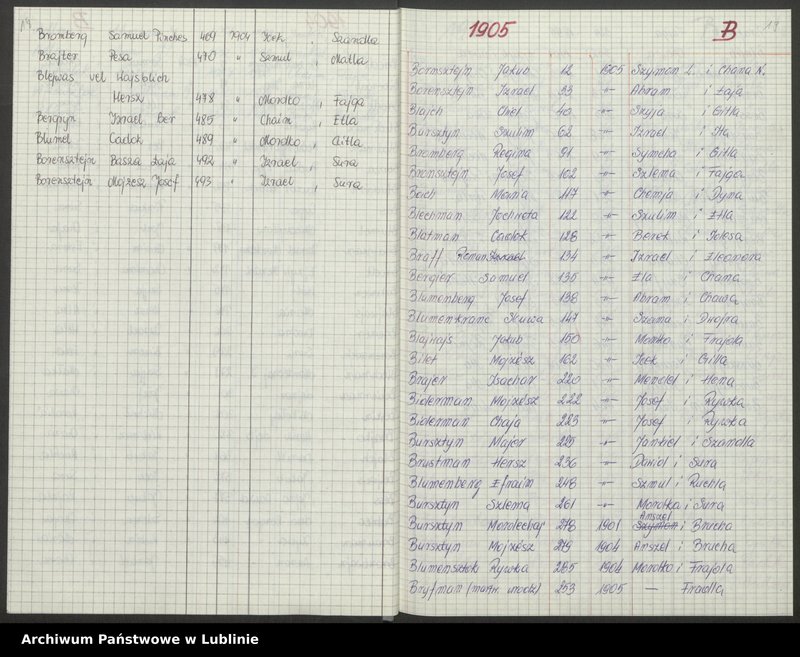 19
Bromberg Samuel Pinches 469 1904 Icek , Szandla
Brajter Pesa 470 " Samul , Matla
Blejwas vel Hajsblich
Hersz 478 " Mordko , Fajga
Bergryn Izrael Ber 485 " Chaim , Etla
Blumel Cadok 489 " Mordko , Gitla
Borensztejn Bassa Łaja 492 " Izrael , Sura
Borensztejn Mojżesz Josef 493 " Izrael , Sura
1905 B 19
Bornsztejn Jakub 12 1905 Szymon L. i Chana N.
Borensztejn Izrael 33 -"- Abram i Łaja
Blajch Chiel 40 -"- Szyja i Gitla
Bursztyn Szulim 62 -"- Izrael i Ita
Bromberg Regina 91 -"- Symcha i Gitla
Bronsztejn Josef 102 -"- Szlema i Fajga
Boich 117 -"- Chemja i Dyna
Blechman Jochweta 122 -"- Szulim i Etla
Blatman Cadok 128 -"- Berek i
Braff Roman 134 -"- Izrael i Eleonora
Bergier Samuel 135 -"- Ela i Chana
Blumenberg Josef 138 -"- Abram i Chawa
Blumenkranc 147 -"- Szama i Dwojra
Blajwajs Jakub 150 -"- Moszko i Frajda
Bilet Mojżesz 162 -"- Icek i Gitla
Brajer Isachar 220 -"- Mendel i Hena
Biderman Mojżesz 222 -"- Josef i Rywka
Biderman Chaja 223 -"- Josef i Rywka
Bursztyn Major 225 -"- Jankiel i Szandla
Brustman Hersz 236 -"- Daniel i Sura
Blumenberg Efraim 248 -"- Szmul i Ruchla
Bursztyn Szlema 261 -"- Mordka i Sura
Anszel
Bursztyn Mordechaj 278 1901 Szymon i Brucha
Bursztyn Mojżesz 279 1904 Anszel i Brucha
Blumensztok Rywka 285 1904 Mordko i Frajda
Bryfman (martw. urodz) 253 1905 — Fradla
Archiwum Państwowe w Lublinie